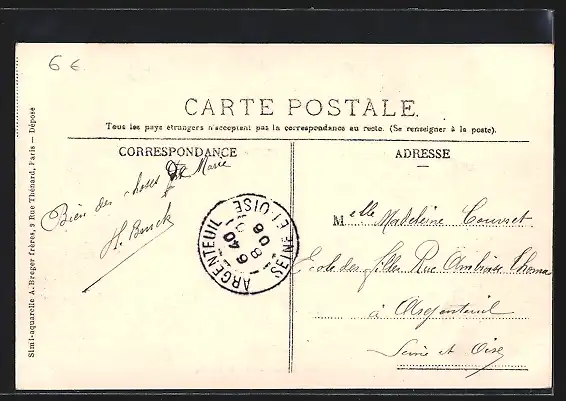 6 €
CARTE POSTALE.
Tous les pays étrangers n'acceptent pas la correspondance au recto. (Se renseigner à la poste).
CORRESPONDANCE
Bien des choses Marie
H. Bruck
Simi-aquarelle A. Breger frères, 9 Rue Thénard, Paris — Déposé
ARGENTEUIL
SEINE ET OISE
6 40
8
06
ADRESSE
Melle Madeleine Couvret
Ecole des filles Rue Ambroise Thomas
à Argenteuil
Seine et Oise